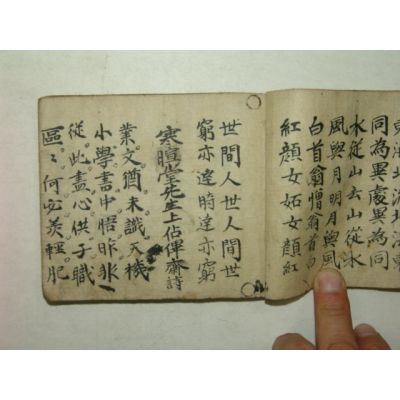 同為異處異為同
水從山去山從水
風與月明月與風
白首翁憎翁首白
紅顏女妬女顏紅
世間人世人間世
窮亦達時達亦窮
寒暄堂先生上佔俾齋詩
業文猶未識天機
小學書中悟昨非
從此盡心供子職
區〻何必羨輕肥